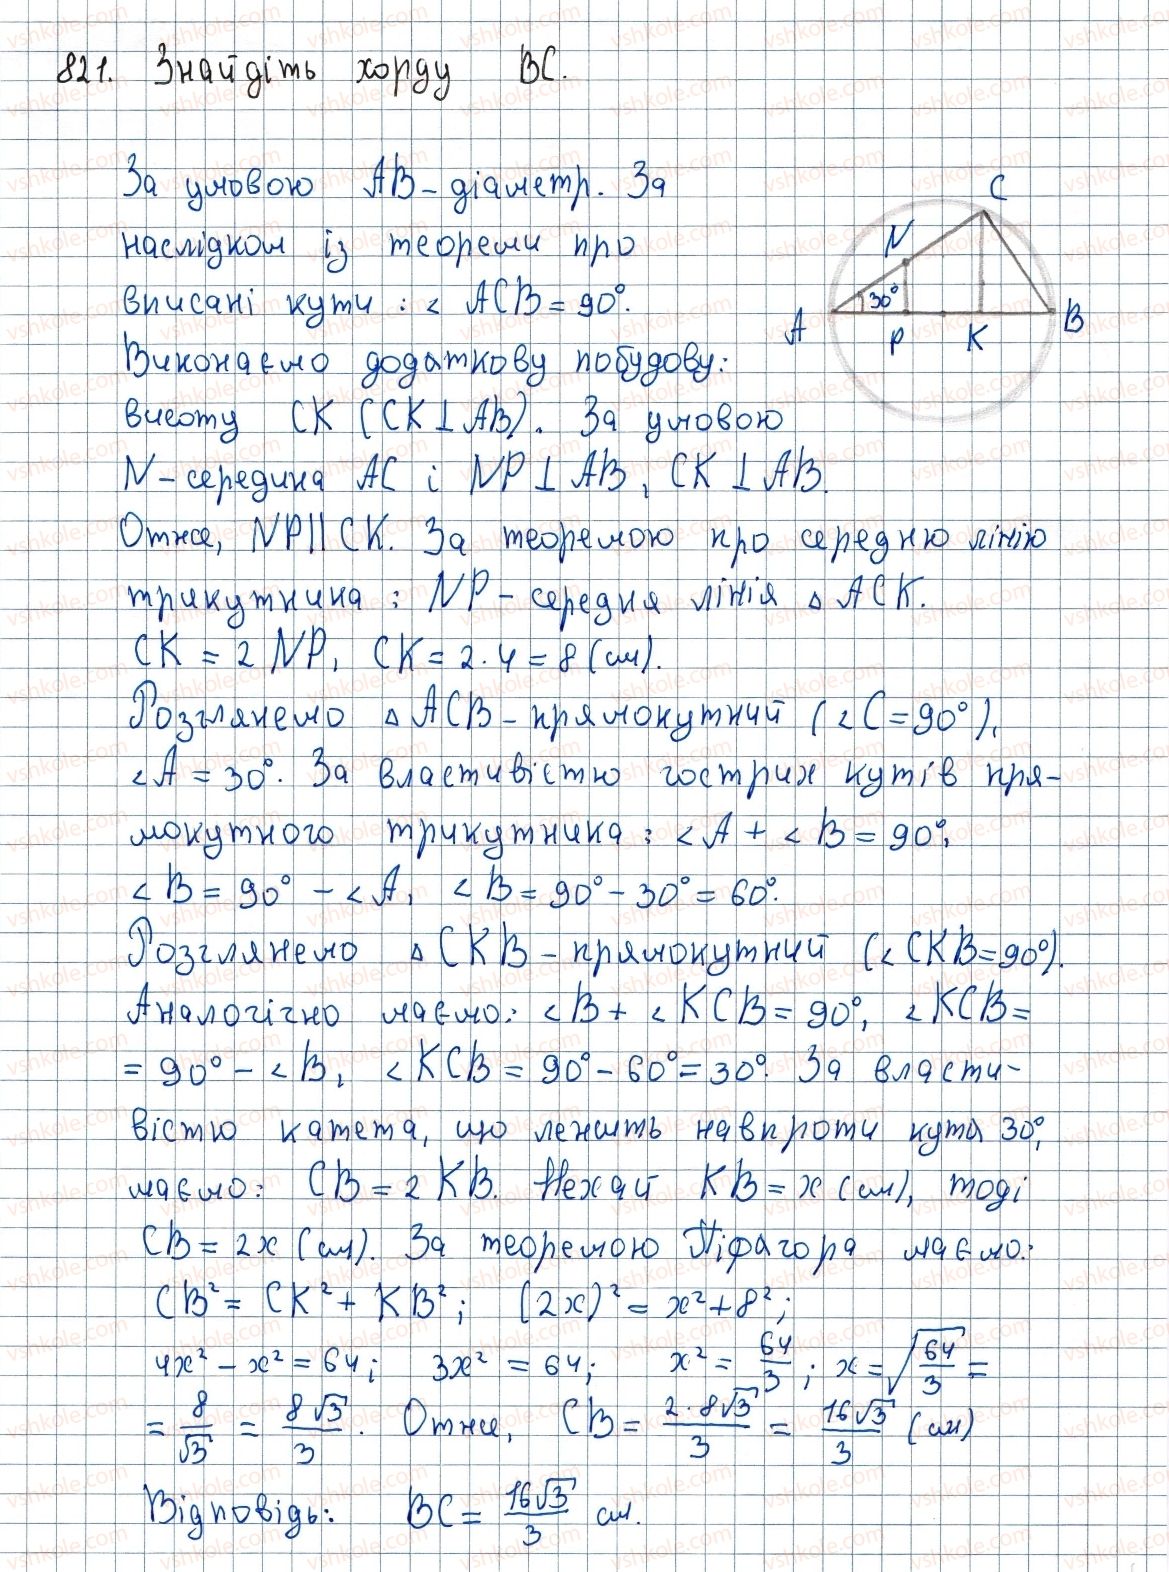 821. Знайдіть хорду BC.
За умовою AB - діаметр. За
наслідком із теореми про
вписані кути: ∠ACB = 90°.
Виконаємо додаткову побудову:
висоту CK (CK ⊥ AB). За умовою
N - середина AC і NP ⊥ AB, CK ⊥ AB.
Отже, NP || CK. За теоремою про середню лінію
трикутника: NP - середня лінія △ACK.
CK = 2NP, CK = 2·4 = 8 (см).
Розглянемо △ACB - прямокутний (∠C = 90°),
∠A = 30°. За властивістю гострих кутів пря-
мокутного трикутника: ∠A + ∠B = 90°,
∠B = 90° - ∠A, ∠B = 90° - 30° = 60°.
Розглянемо △CKB - прямокутний (∠CKB = 90°).
Аналогічно маємо: ∠B + ∠KCB = 90°, ∠KCB =
= 90° - ∠B, ∠KCB = 90° - 60° = 30°. За власти-
вістю катета, що лежить навпроти кута 30°,
маємо: CB = 2KB. Нехай KB = x (см), тоді
CB = 2x (см). За теоремою Піфагора маємо:
CB² = CK² + KB²; (2x)² = x² + 8²;
4x² - x² = 64; 3x² = 64; x² = 64/3; x = √(64/3) =
= 8/√3 = 8√3/3. Отже, CB = 2·8√3/3 = 16√3/3 (см)
Відповідь: BC = 16√3/3 см.
C
N
30°
A
P
K
B